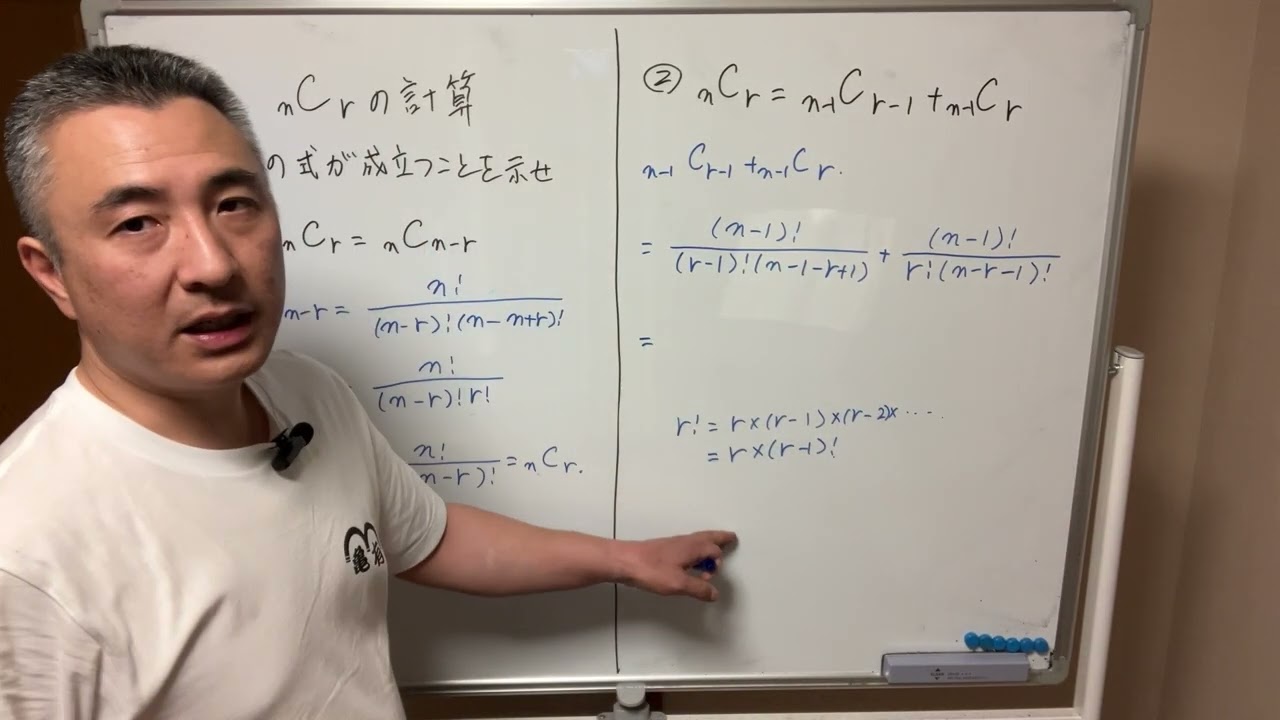 nCrの計算
の式が成立つことを示せ
nCr = nCn-r
n-r = n! / (n-r)!(n-n+r)!
n! / (n-r)!r!
n! / n-r)! = nCr.
② nCr = n-1Cr-1 + n-1Cr
n-1Cr-1 + n-1Cr.
= (n-1)! / (r-1)!(n-1-r+1) + (n-1)! / r!(n-r-1)!
=
r! = r×(r-1)×(r-2)×····
= r×(r-1)!
亀有